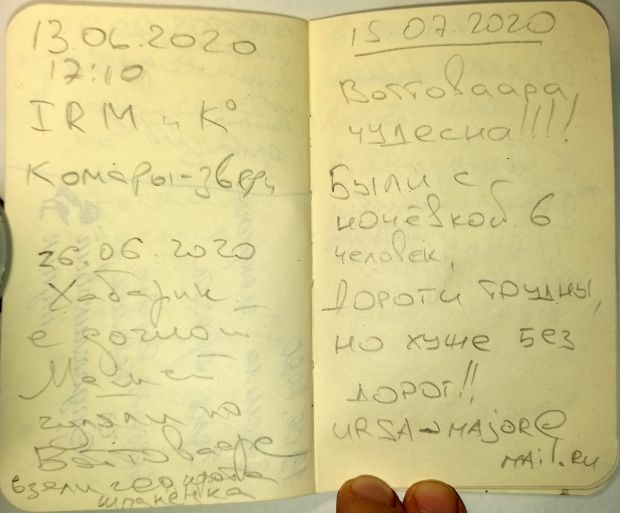 13.06.2020
17:10
IRM и К°
Комары-звери
26.06.2020
Хабарик
с дочкой
гуляли по
Воттовааре
взели геопрота
шпаненка
15.07.2020
Воттоваара
чудесна!!!!
Были с
ночёвкой 6
человек,
Дороги трудны,
но хуже без
дорог!!
URSA-MAJOR@
MAIL.RU